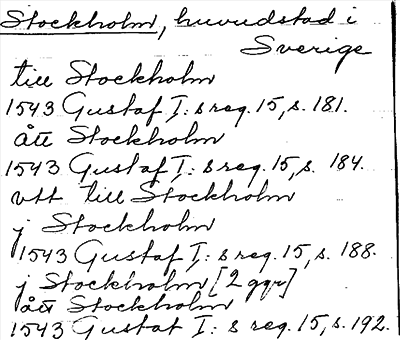 Stockholm, huvudstad i
Sverige
till Stockholm
1543 Gustaf I: s reg. 15, s. 181.
ått Stockholm
1543 Gustaf I: s reg. 15, s. 184.
vtt till Stockholm
j Stockholm
1543 Gustaf I: s reg. 15, s. 188.
j Stockholm [2 ggr]
ått Stockholm
1543 Gustaf I: s reg. 15, s. 192.